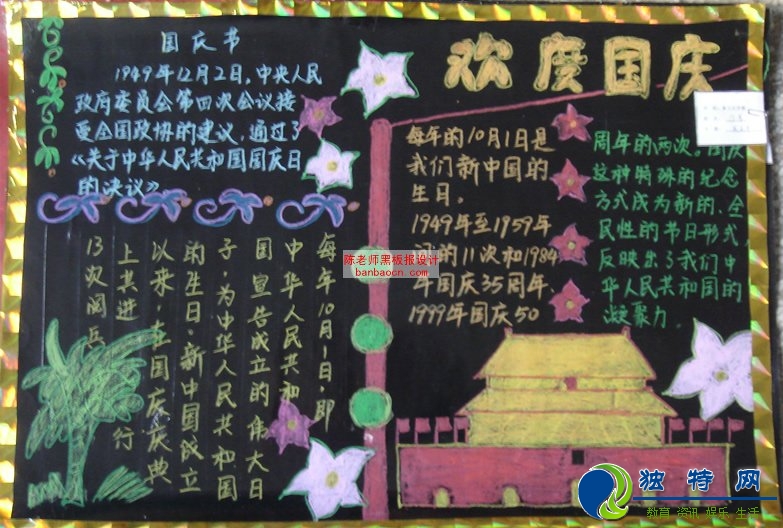 国庆节
1949年12月2日，中央人民
政府委员会第四次会议接
受全国政协的建议，通过了
《关于中华人民共和国国庆日
的决议》
每年10月1日，即
中华人民共和
国宣告成立的伟大日
子，为中华人民共和国
的生日。新中国成立
以来，在国庆庆典
上共进行
13次阅兵
欢度国庆
每年的10月1日是
我们新中国的
生日。
1949年至1959年
的11次和1984
年国庆35周年、
1999年国庆50
周年的两次。国庆
这种特殊的纪念
方式成为新的、全
民性的节日形式，
反映出了我们中
华人民共和国的
凝聚力。
陈老师黑板报设计
banbaocn.com
独特网
教育 资讯 娱乐 生活